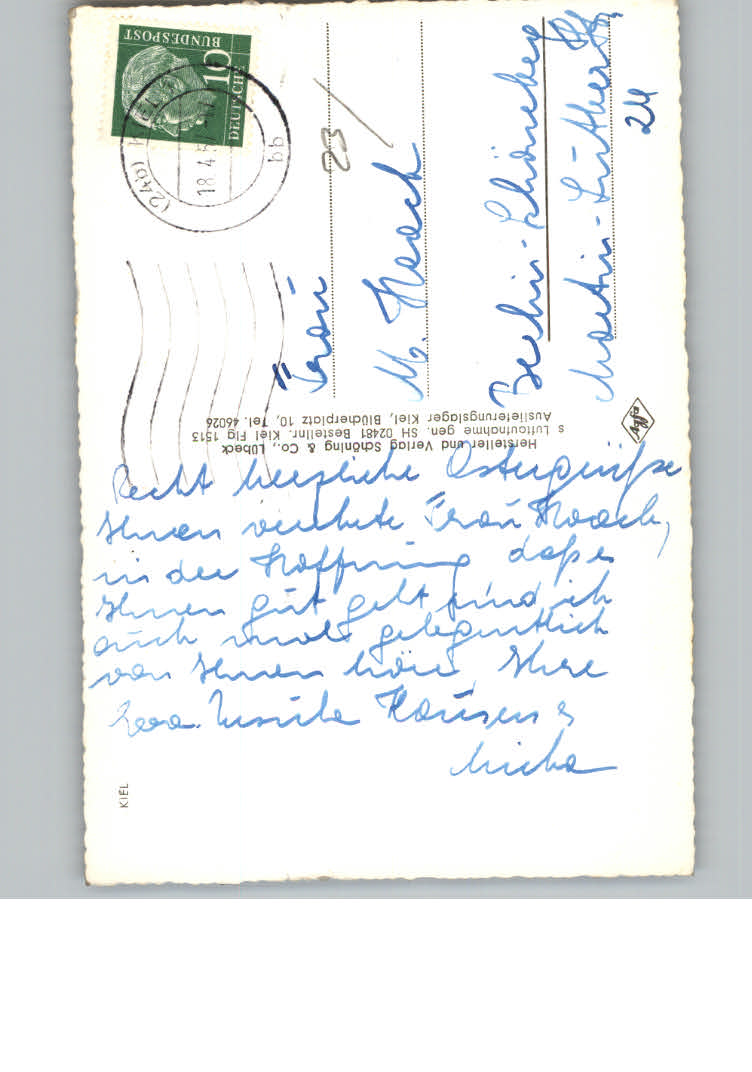 DEUTSCHE
BUNDESPOST
10
(24b) KIEL
18.4.5
bb
23
Frau
M. Haack
Berlin-Schöneberg
Martin-Luther Str
24
Hersteller und Verlag Schöning & Co., Lübeck
s Luftaufnahme gen. SH 02481 Bestellnr. Kiel Flg 1513
Auslieferungslager Kiel, Blücherplatz 10, Tel. 46026
Recht herzliche Ostergrüße
Ihnen verehrte Frau Haack,
in der Hoffnung daß es
Ihnen gut geht und ich
auch mal gelegentlich
von Ihnen höre, Ihre
Ursula Hansen &
Micha
KIEL